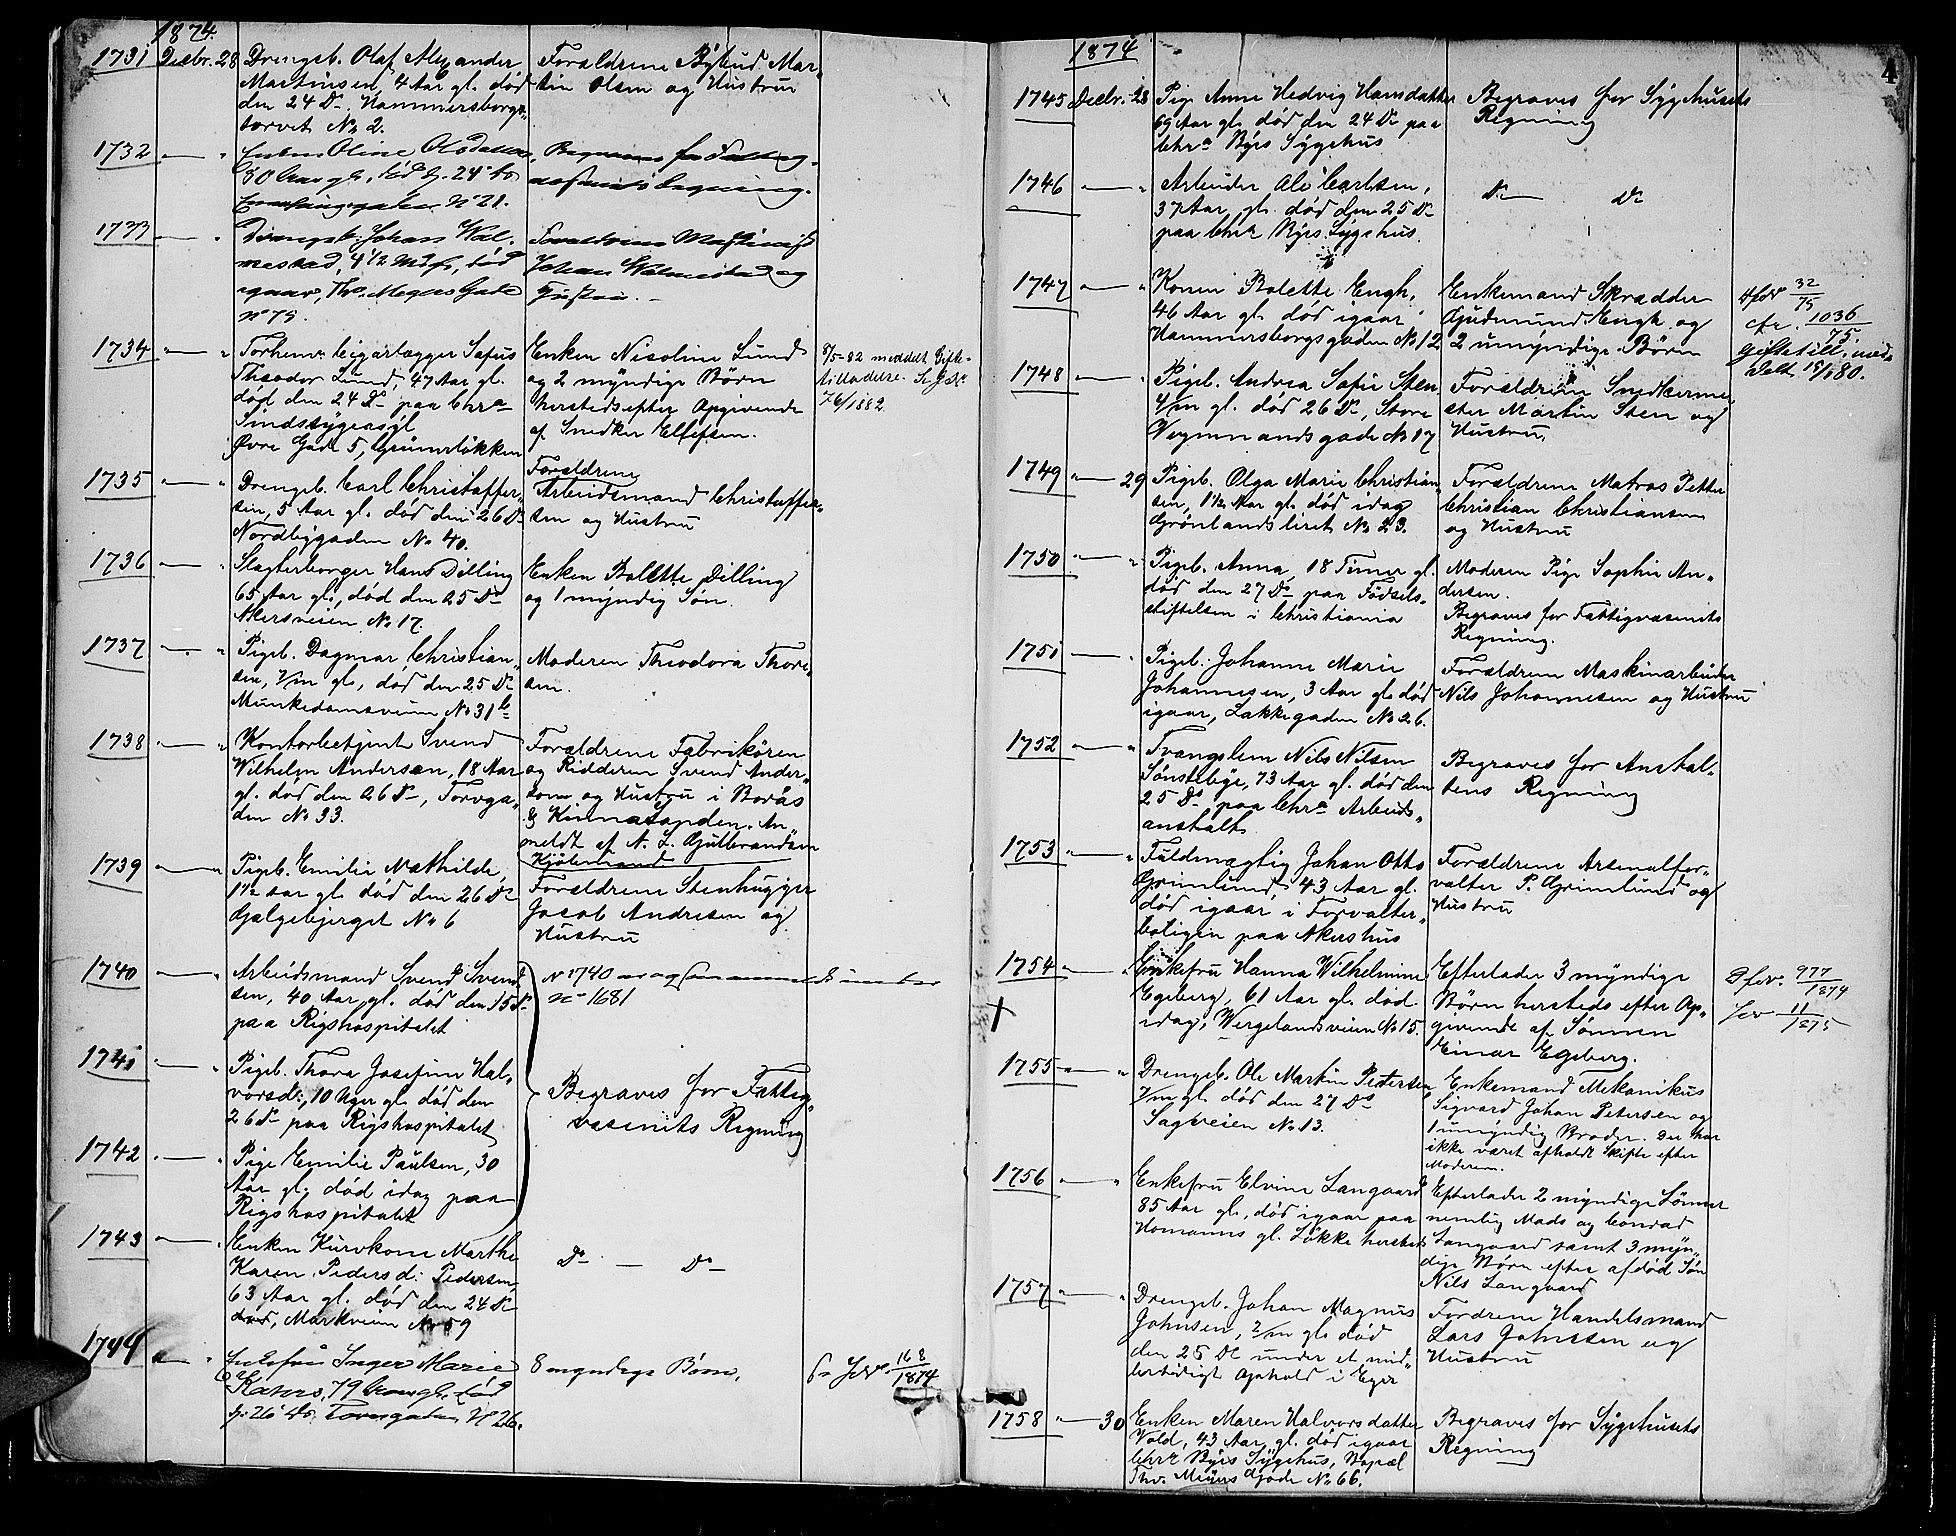 1874.
1731 Decbr. 28 Drengeb. Olaf Alexander
Martinsen, 4 Aar gl. død
den 24 Ds, Hammersborgs
torvet No 2.
Forældrene Bybud Mar-
tin Olsen og Hustru
1732 — " Enken Oline Olsdatter
80 Aar gl., død d. 24 ds
No 21.
Begraves for Fattig-
væsenets Regning.
1733 — " Drengeb. Johan Wal-
mestad, 4 1/2 Md gl., død
igaar, Thv. Meyers Gade
No 75.
Forældrene
Johan Walmestad og
Hustru. —
1734 — " Forhenv. Cigarlægger Sofus
Theodor Lund, 47 Aar gl.
død den 24 Ds paa Chra
Sindssygeasyl
Øvre Gade 5, Grünerløkken
Enken Nicoline Lund
og 2 myndige Børn
herstedsefter Opgivende
af Snedker Ellefsen.
8/5-82 meddelt Gifte-
tilladelse.
76/1882
1735 — " Drengeb. Carl Christoffer-
sen, 5 Aar gl. død den 26 Ds
Nordbygaden No 40.
Forældrene
Arbeidsmand Christoffer-
sen og Hustru
1736 — " Slagterborger Hans Dilling
65 Aar gl., død den 25 Ds
Akersveien No 17.
Enken Bolette Dilling
og 1 myndig Søn.
1737 — " Pigeb. Dagmar Christian-
sen, 7/m gl., død den 25 Ds
Munkedamsveien No 31 b
Moderen Theodora Thore-
sen.
1738 — " Kontorbetjent Svend
Wilhelm Andersen, 18 Aar
gl. død den 26 Ds, Torvga-
den No 33.
Forældrene Fabrikören
og Ridderen Svend Ander-
son og Hustru i Borås
& Kinnasanden. An-
meldt af A. L. Gulbrandsen
Kjøbmand
1739 — " Pigeb. Emilie Mathilde,
1 1/2 Aar gl. død den 26 Ds
Galgebjerget No 6
Forældrene Stenhugger
Jacob Andresen og
Hustru
1740 — " Arbeidsmand Svend Svend-
sen, 40 Aar gl. død den 15 Ds
paa Rigshospitalet
No 1740 er ogsaa anmeldt under
No 1681
1741 — " Pigeb. Thora Josefine Hal-
vorsdr, 10 Uger gl. død den
26 Ds paa Rigshospitalet
Begraves for Fattig-
væsenets Regning
1742 — " Pige Emilie Paulsen, 30
Aar gl. død idag paa
Rigshospitalet
1743 — " Enken Kurvkone Marthe
Karen Pedersd: Pedersen
63 Aar gl. død den 24 Ds
død, Markveien No 59
Ds — Ds
1744 — " Enkefru Inger Marie
79 Aar gl. død
d. 26 Ds. Torvgaden No 26.
8 myndige Børn.
168/1874
4
1874
1745 Decbr. 28 Pige Anne Hedvig Hansdatter
69 Aar gl. død den 24 Ds paa
Chra Byes Sygehus
Begraves for Sygehusets
Regning
1746 — " Arbeider Ole Carlsen,
37 Aar gl. død den 25 Ds
paa Chra Byes Sygehus.
Ds — Ds
1747 — " Konen Bolette Engh,
46 Aar gl. død igaar
Hammersborgsgaden No 12
Enkemand Skrædder
Gudmund Engh og
2 umyndige Børn
32/75
cfr. 1036/75.
Giftetill. med-
delt 18/8 80.
1748 — " Pigeb. Andrea Sofie Sten
4/m gl. død 26 Ds, Store
Vognmandsgade No 17
Forældrene Snedkerme-
ster Martin Sten og
Hustru.
1749 — 29 Pigeb. Olga Marie Christian-
sen, 1 1/2 Aar gl. død idag
Grønlandsleret No 23.
Forældrene Matros Petter
Christian Christiansen
og Hustru
1750 — " Pigeb. Anna, 18 Timer gl.
død den 27 Ds paa Fødsels-
stiftelsen i Christiania
Moderen Pige Sophie An-
dersen.
Begraves for Fattigvæsenets
Regning.
1751 — " Pigeb. Johanne Marie
Johannesen, 3 Aar gl. død
igaar, Lakkegaden No 26.
Forældrene Maskinarbeider
Nils Johannesen og Hustru
1752 — " Tvangslem Nils Nilsen
Sønsteby, 73 Aar gl. død den
25 Ds paa Chra Arbeids-
anstalt
Begraves for Anstal-
tens Regning
1753 — " Fuldmægtig Johan Otto
Grimlund, 43 Aar gl.
død igaar i Forvalter-
boligen paa Akershus
Forældrene Arsenalfor-
valter P. Grimlund og
Hustru
1754 — " Enkefru Hanna Wilhelmine
Egeberg, 61 Aar gl. død
idag, Wergelandsveien No 15.
Efterlader 3 myndige
Børn hersteds efter Op-
givende af Sønnen
Einar Egeberg.
977/1874
11/1875
1755 — " Drengeb. Ole Martin Petersen
7/m gl. død den 27 Ds
Sagveien No 13.
Enkemand Mekanikus
Sigvard Johan Petersen og
1 umyndig Broder. Der har
ikke været afholdt Skifte efter
Moderen.
1756 — " Enkefru Elvine Langaard
85 Aar gl., død igaar paa
Homanns gl. Løkke hersteds
Efterlader 2 myndige Sønner
nemlig Mads og Conrad
Langaard samt 3 myn-
dige Børn efter afdød Søn
Nils Langaard
1757 — " Drengeb. Johan Magnus
Johnsen, 2/m gl. død
den 25 Ds under et mid-
lertidigt Ophold i Eger
Forældrene Handelsmand
Lars Johnsen og
Hustru
1758 — 30 Enken Maren Halvorsdatter
Vold, 43 Aar gl. død igaar
Chra Byes Sygehus, Bopæl
Thv. Meiers Gade No 66.
Begraves for Sygehusets
Regning